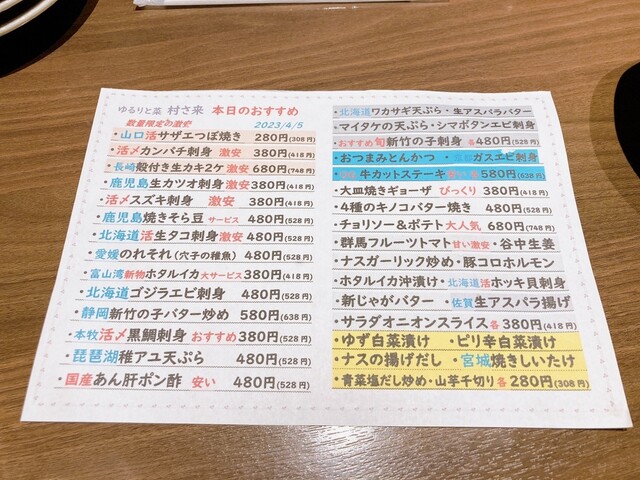 ゆるりと菜 村さ来 本日のおすすめ
数量限定の激安 2023/4/5
・山口活サザエつぼ焼き 280円(308円)
・活〆カンパチ刺身 激安 380円(418円)
・長崎殻付き生カキ2ケ 激安 680円(748円)
・鹿児島生カツオ刺身 激安 380円(418円)
・活〆スズキ刺身 激安 380円(418円)
・鹿児島焼きそら豆 サービス 480円(528円)
・北海道活生タコ刺身 激安 480円(528円)
・愛媛のれそれ(穴子の稚魚) 480円(528円)
・富山湾新物ホタルイカ 大サービス 380円(418円)
・北海道ゴジラエビ刺身 480円(528円)
・静岡新竹の子バター炒め 580円(638円)
・本牧活〆黒鯛刺身 おすすめ 380円(528円)
・琵琶湖稚アユ天ぷら 480円(528円)
・国産あん肝ポン酢 安い 480円(528円)
・北海道ワカサギ天ぷら・生アスパラバター
・マイタケの天ぷら・シマボタンエビ刺身
・おすすめ旬新竹の子刺身 各480円(528円)
・おつまみとんかつ ・ガスエビ刺身
・牛カットステーキ 580円(638円)
・大皿焼きギョーザ びっくり 380円(418円)
・4種のキノコバター焼き 480円(528円)
・チョリソー&ポテト 大人気 680円(748円)
・群馬フルーツトマト 甘い激安 ・谷中生姜
・ナスガーリック炒め・豚コロホルモン
・ホタルイカ沖漬け・北海道活ホッキ貝刺身
・新じゃがバター ・佐賀生アスパラ揚げ
・サラダオニオンスライス 各380円(418円)
・ゆず白菜漬け ・ピリ辛白菜漬け
・ナスの揚げだし ・宮城焼きしいたけ
・青菜塩だし炒め・山芋千切り各280円(308円)